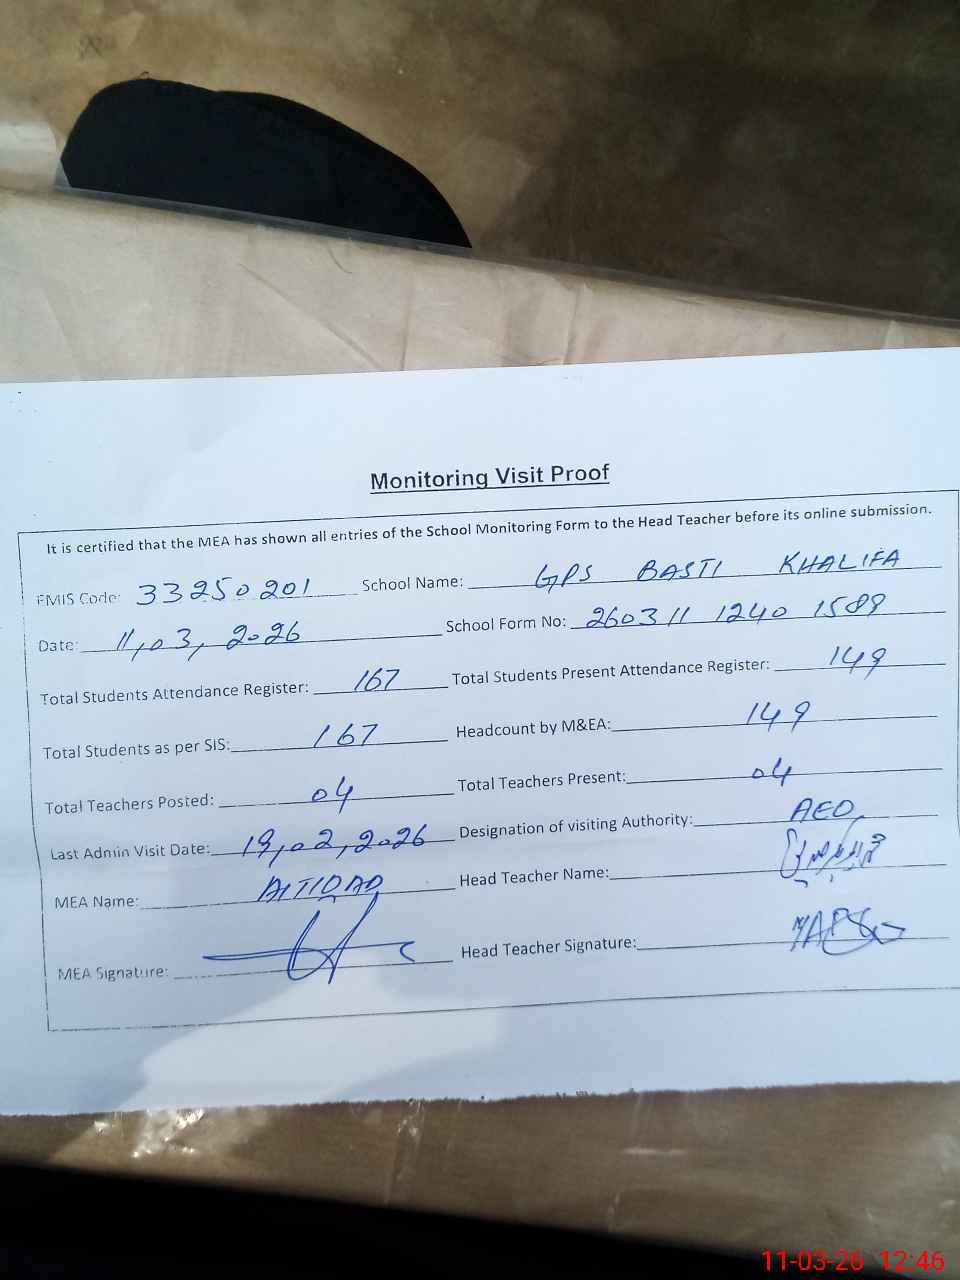 Monitoring Visit Proof
It is certified that the MEA has shown all entries of the School Monitoring Form to the Head Teacher before its online submission.
EMIS Code: 33250201 School Name: GPS BASTI KHALIFA
Date: 11,03,2026 School Form No: 260311 1240 1588
Total Students Attendance Register: 167 Total Students Present Attendance Register: 149
Total Students as per SIS: 167 Headcount by M&EA: 149
Total Teachers Posted: 04 Total Teachers Present: 04
Last Admin Visit Date: 19,02,2026 Designation of visiting Authority: AEO
MEA Name: Head Teacher Name:
MEA Signature: Head Teacher Signature:
11-03-26 12:46